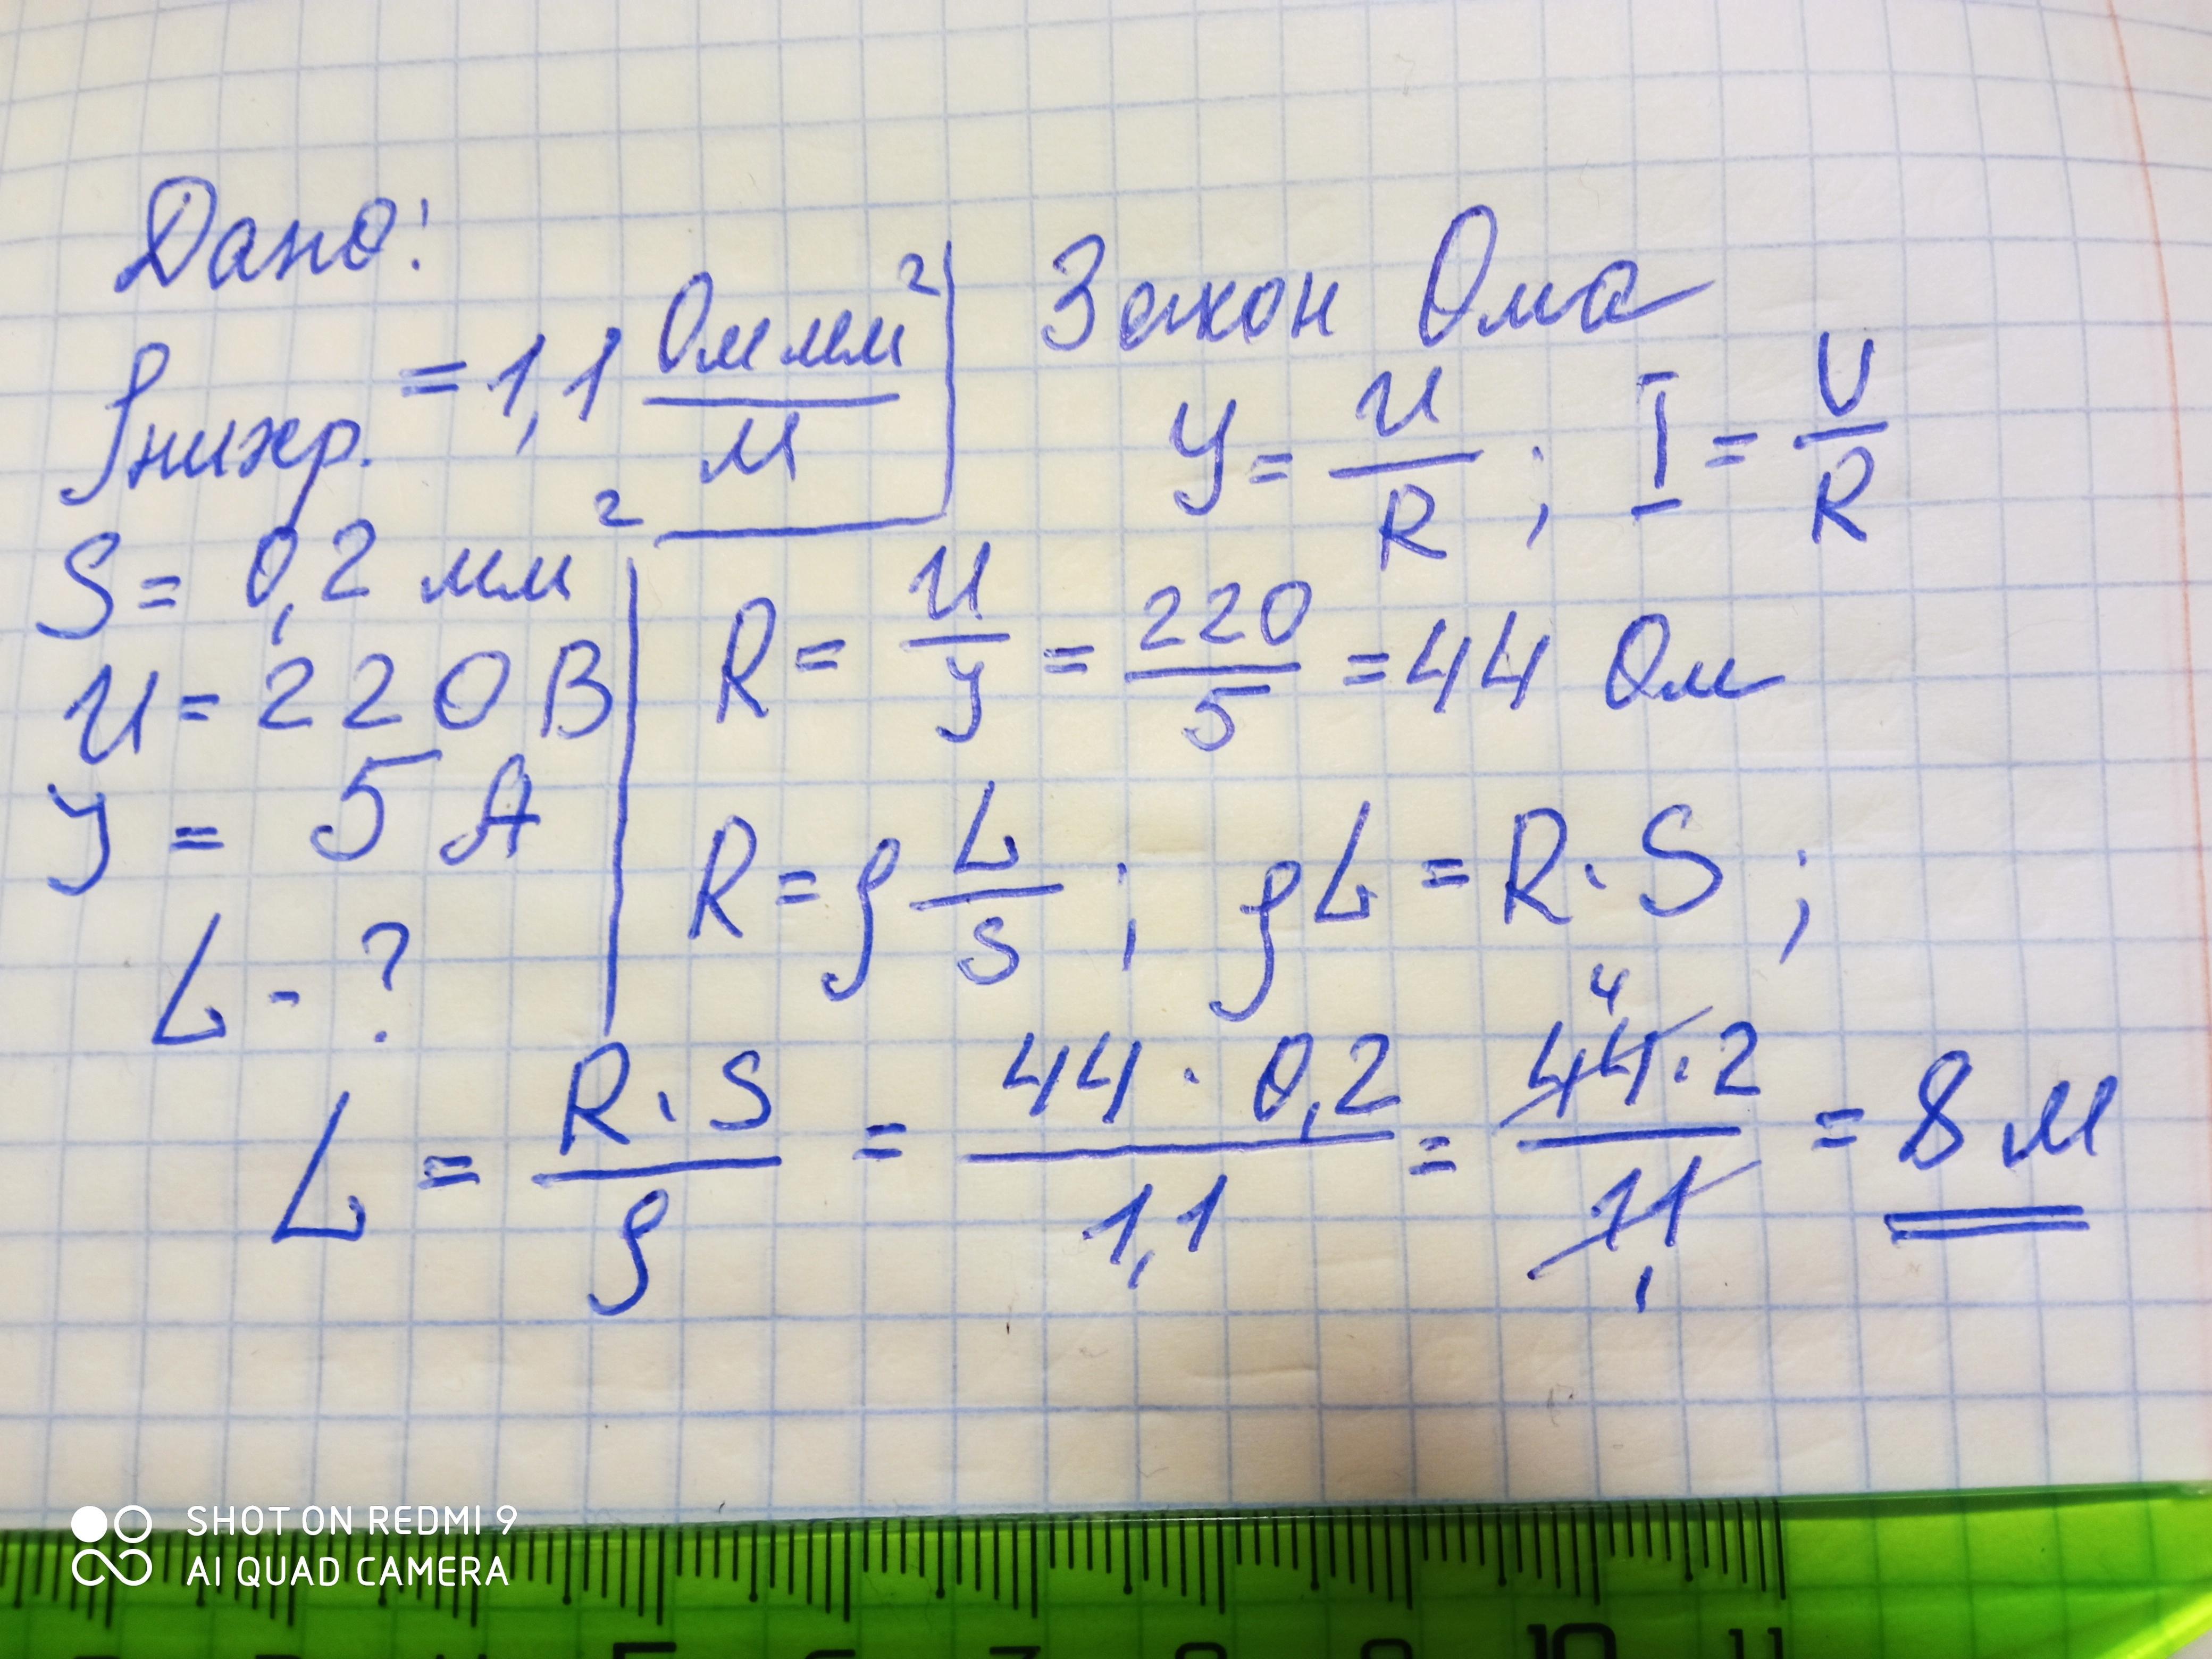 Дано:
ρнихр. = 1,1 Ом мм²/м
S = 0,2 мм²
U = 220 В
J = 5 А
L - ?
Закон Ома
J = U/R ; I = U/R
R = U/J = 220/5 = 44 Ом
R = ρ L/S ; ρL = R · S ;
L = R · S/ρ = 44 · 0,2/1,1 = 44 · 2/11 = 8 м
4
1
SHOT ON REDMI 9
AI QUAD CAMERA
5 6 7 8 9 10 11